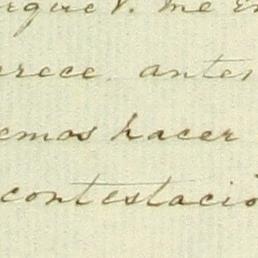 me
erece antes
emos hacer
contestació